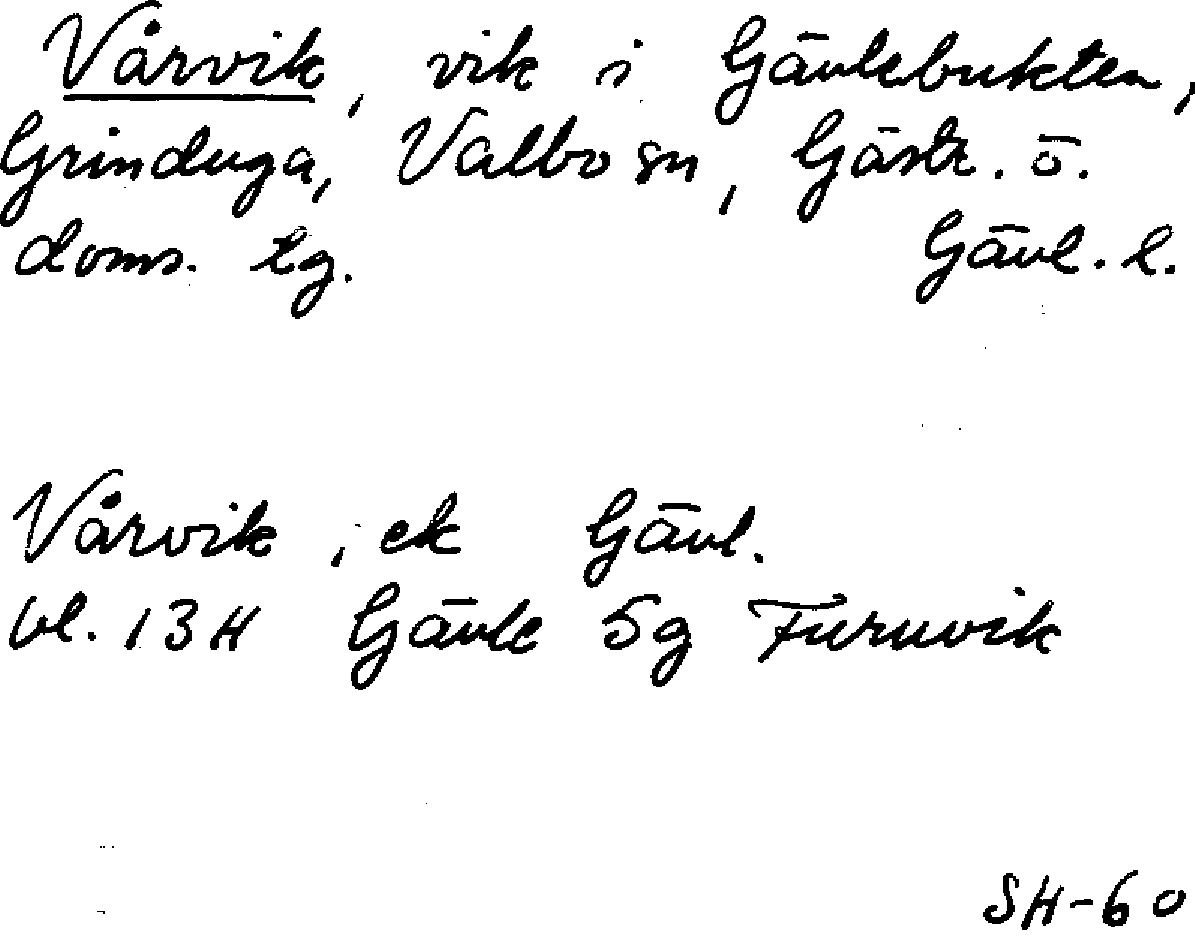 Vårvik, vik i Gävlebukten,
Grinduga, Valbo sn, Gästr. ö.
doms. tg. Gävl. l.
Vårvik, ek Gävl.
bl. 13H Gävle 5g Furuvik
SH-60